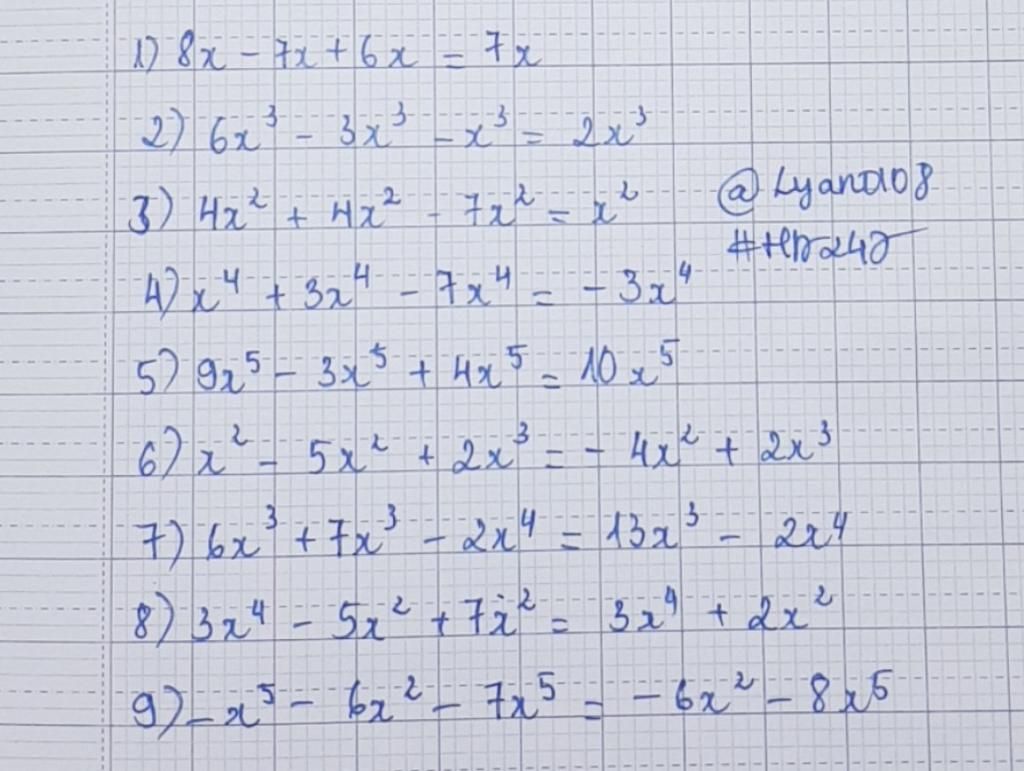 1) 8x - 7x + 6x = 7x
2) 6x³ - 3x³ - x³ = 2x³
3) 4x² + 4x² - 7x² = x²
@Lyana108
4) x⁴ + 3x⁴ - 7x⁴ = -3x⁴
5) 9x⁵ - 3x⁵ + 4x⁵ = 10x⁵
6) x² - 5x² + 2x³ = -4x² + 2x³
7) 6x³ + 7x³ - 2x⁴ = 13x³ - 2x⁴
8) 3x⁴ - 5x² + 7x² = 3x⁴ + 2x²
9) -x⁵ - 6x² - 7x⁵ = -6x² - 8x⁵